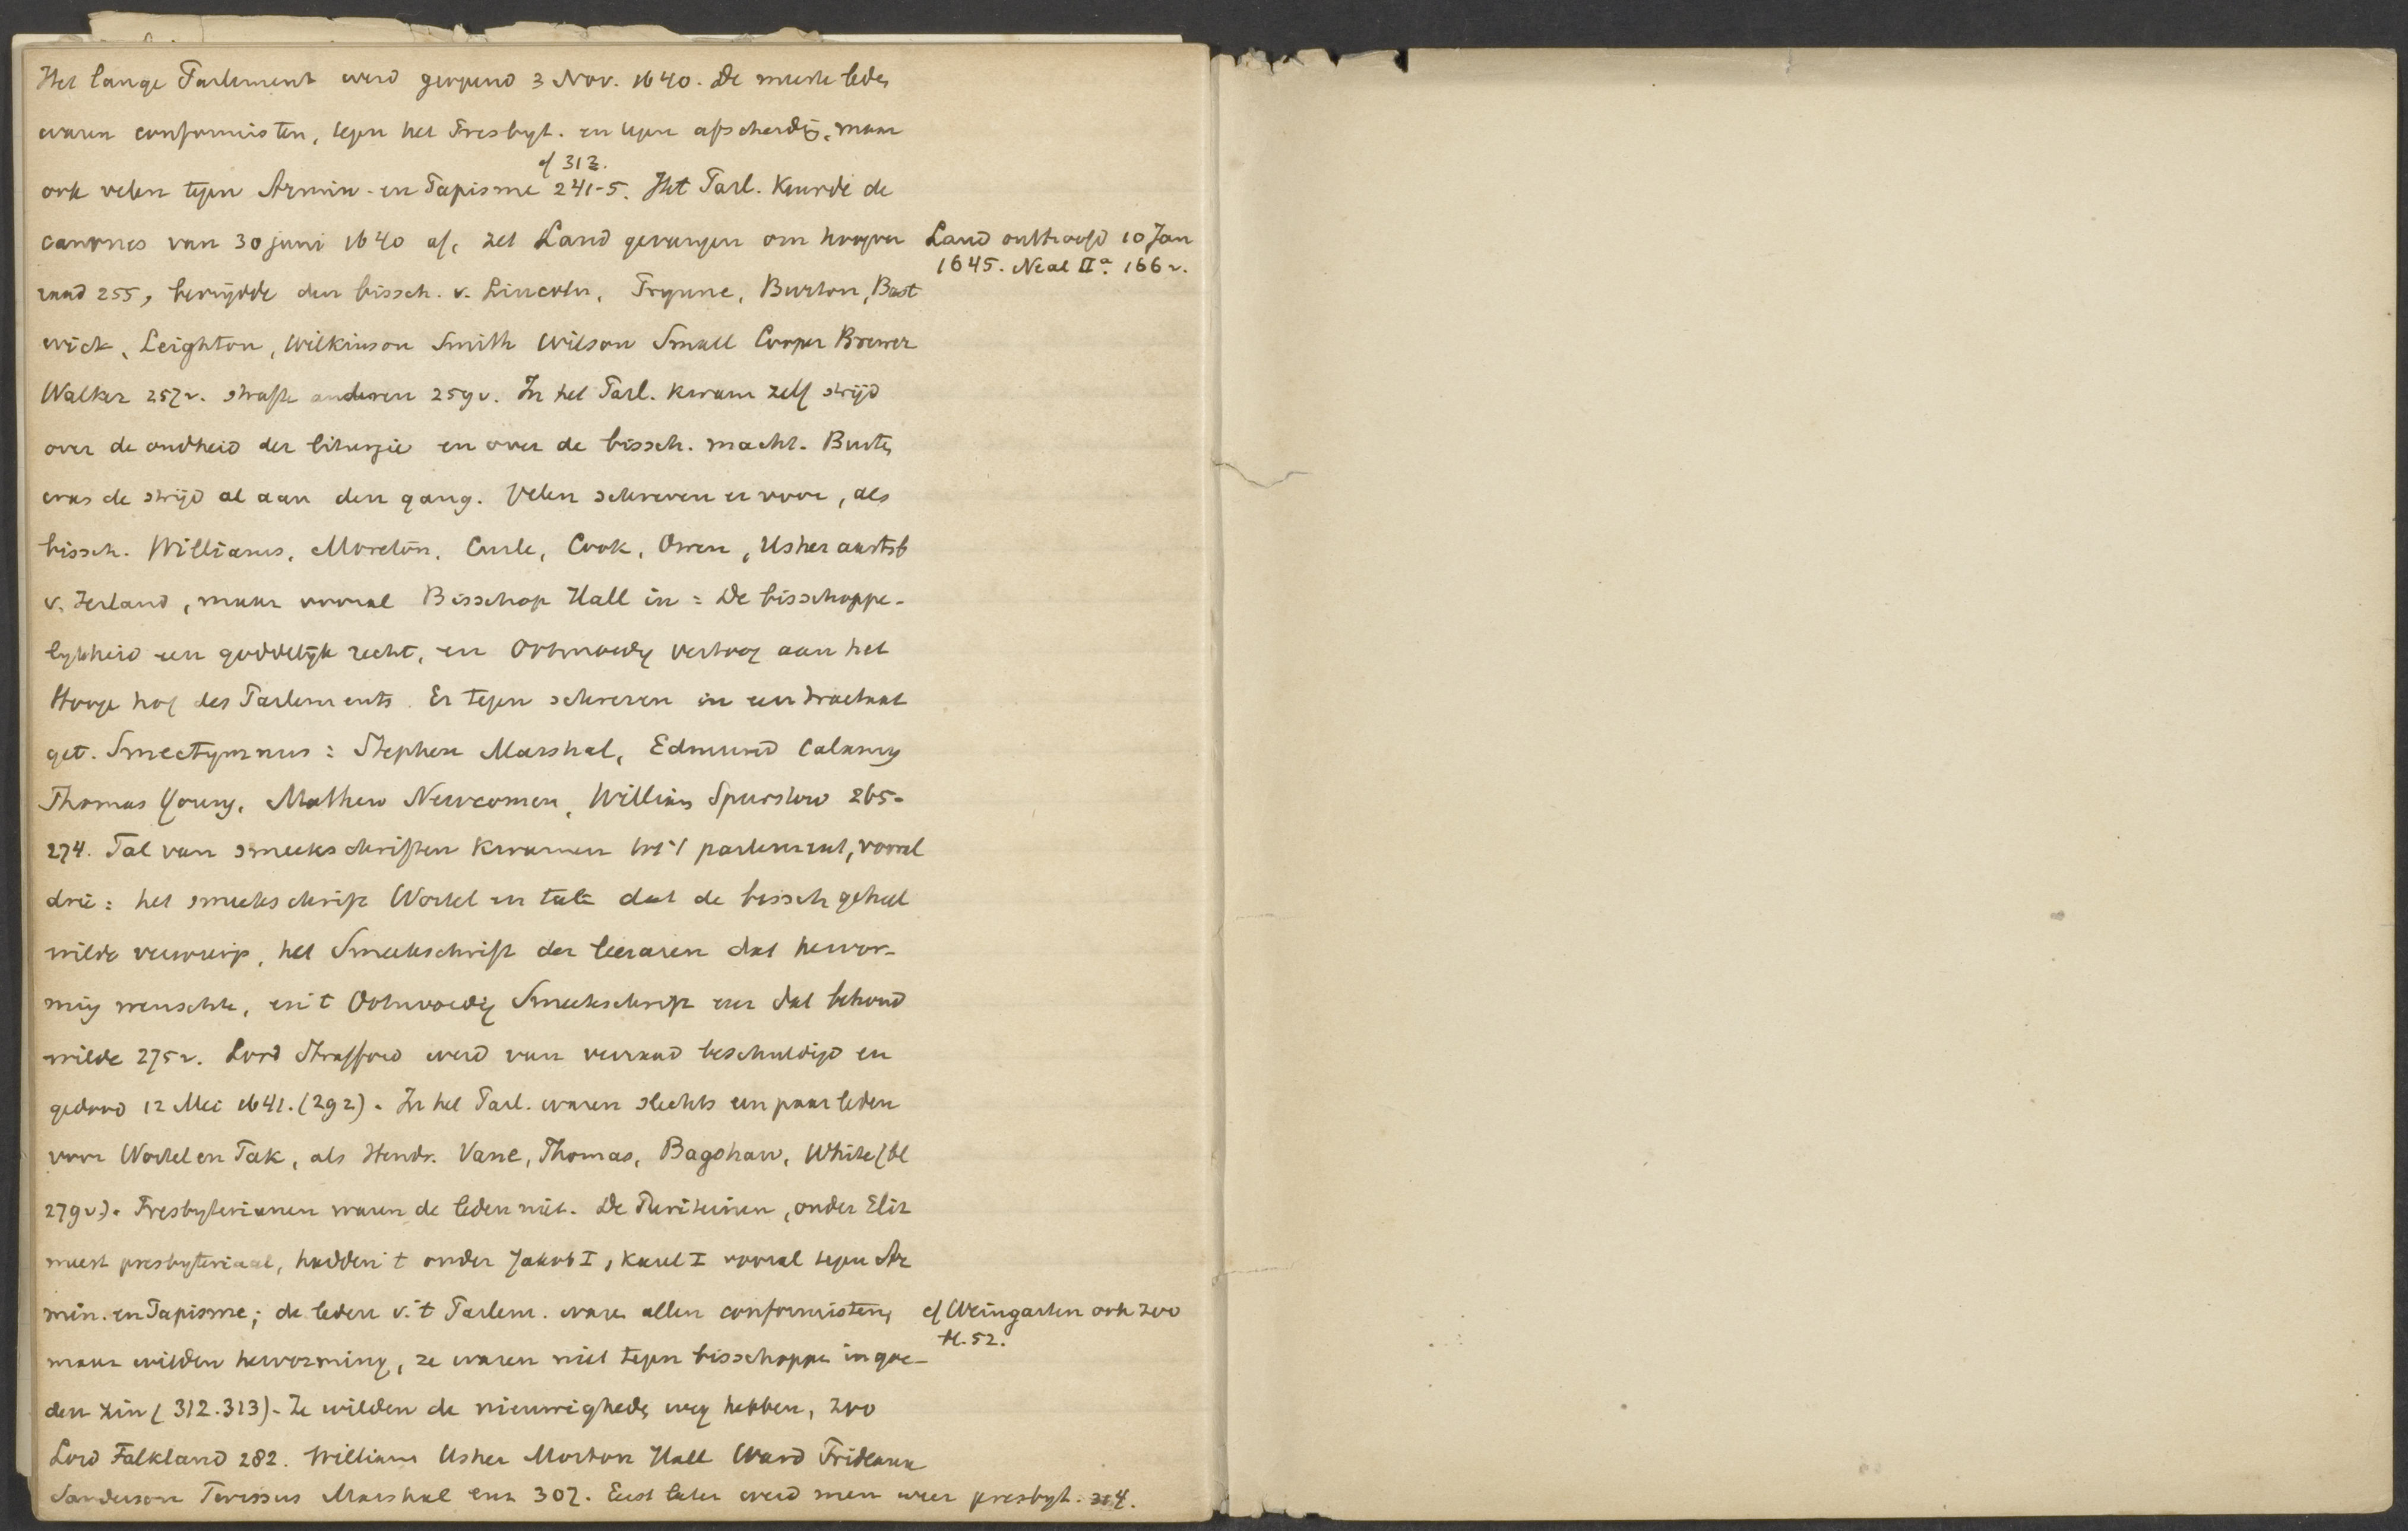 Het lange Parlement werd geopend 3 Nov. 1640. De meeste leden
waren conformisten, tegen het Presbyt. en tegen afscheidg, maar
cf 313.
ook velen tegen Armin- en Papisme 241-5. Het Parl. keurde de
canones van 30 juni 1640 af, zet Laud gevangen om hoogver
Laud onthoofd 10 Jan
1645. Neal IIa. 166v.
raad 255, bevrijdde den bissch. v. Lincoln, Prynne, Burton, Bast
wick, Leighton, Wilkinson Smith Wilson Small Cooper Brewer
Walker 257v. strafte anderen 259v. In het Parl. kwam zelf strijd
over de oudheid der liturgie en over de bissch. macht. Buiten
was de strijd al aan den gang. Velen schreven er voor, als
bissch. Williams, Moreton, Curle, Cook, Owen, Usher aartsb
v. Ierland, maar vooral Bisschop Hall in: De bisschoppe-
lykheid een goddelijk recht, en Ootmoedig vertoog aan het
Hooge hof des Parlements. Er tegen schreven in een tractaat
get. Smectymnus: Stephen Marshal, Edmund Calamy
Thomas Young, Mathew Newcomen, William Spurstow 265-
274. Tal van smeekschriften kwamen tot 't parlement, vooral
drie: het smeekschrift Wortel en tak dat de bissch geheel
wilde verwerp, het Smeekschrift der leeraren dat hervor-
ming wenschte, en 't Ootmoedig Smeekschrift enz dat behoud
wilde 275v. Lord Strafford werd van verraad beschuldigd en
gedood 12 Mei 1641. (292). In het Parl. waren slechts een paar leden
voor Wortel en Tak, als Hendr. Vane, Thomas, Bagshaw, White (bl
279v). Presbyterianen waren de leden niet. De Puriteinen, onder Eliz
meest presbyteriaal, hadden 't onder Jakob I, Karel I vooral tegen Ar
min. en Papisme; de leden v. 't Parlem. waren allen conformisten,
cf Weingarten ook zoo
bl. 52.
maar wilden hervorming, ze waren niet tegen bisschoppen in goe-
den zin (312.313). Ze wilden de nieuwigheden weg hebben, zoo
Lord Falkland 282. William Usher Morton Hall Ward Prideaux
Sanderson Marshal enz 307. Eerst later werd men weer presbyt. 314.